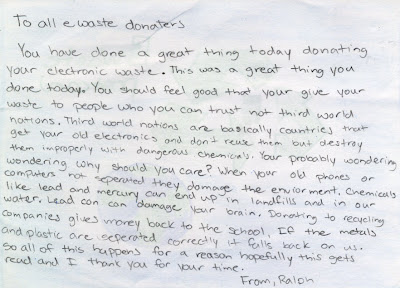 To all e waste donaters
You have done a great thing today donating
your electronic waste. This was a great thing you
done today. You should feel good that your give your
waste to people who you can trust not third world
nations. Third world nations are basically countries that
get your old electronics and don't reuse them but destroy
them improperly with dangerous chemicals. Your probably wondering
wondering why should you care? When your old phones or
computers not seperated they damage the enviorment. Chemicals
like lead and mercury can end up in landfills and in our
water. Lead can can damage your brain. Donating to recycling
companies gives money back to the school. If the metals
and plastic are seperated correctly it falls back on us.
So all of this happens for a reason hopefully this gets
read and I thank you for your time.
From, Ralph